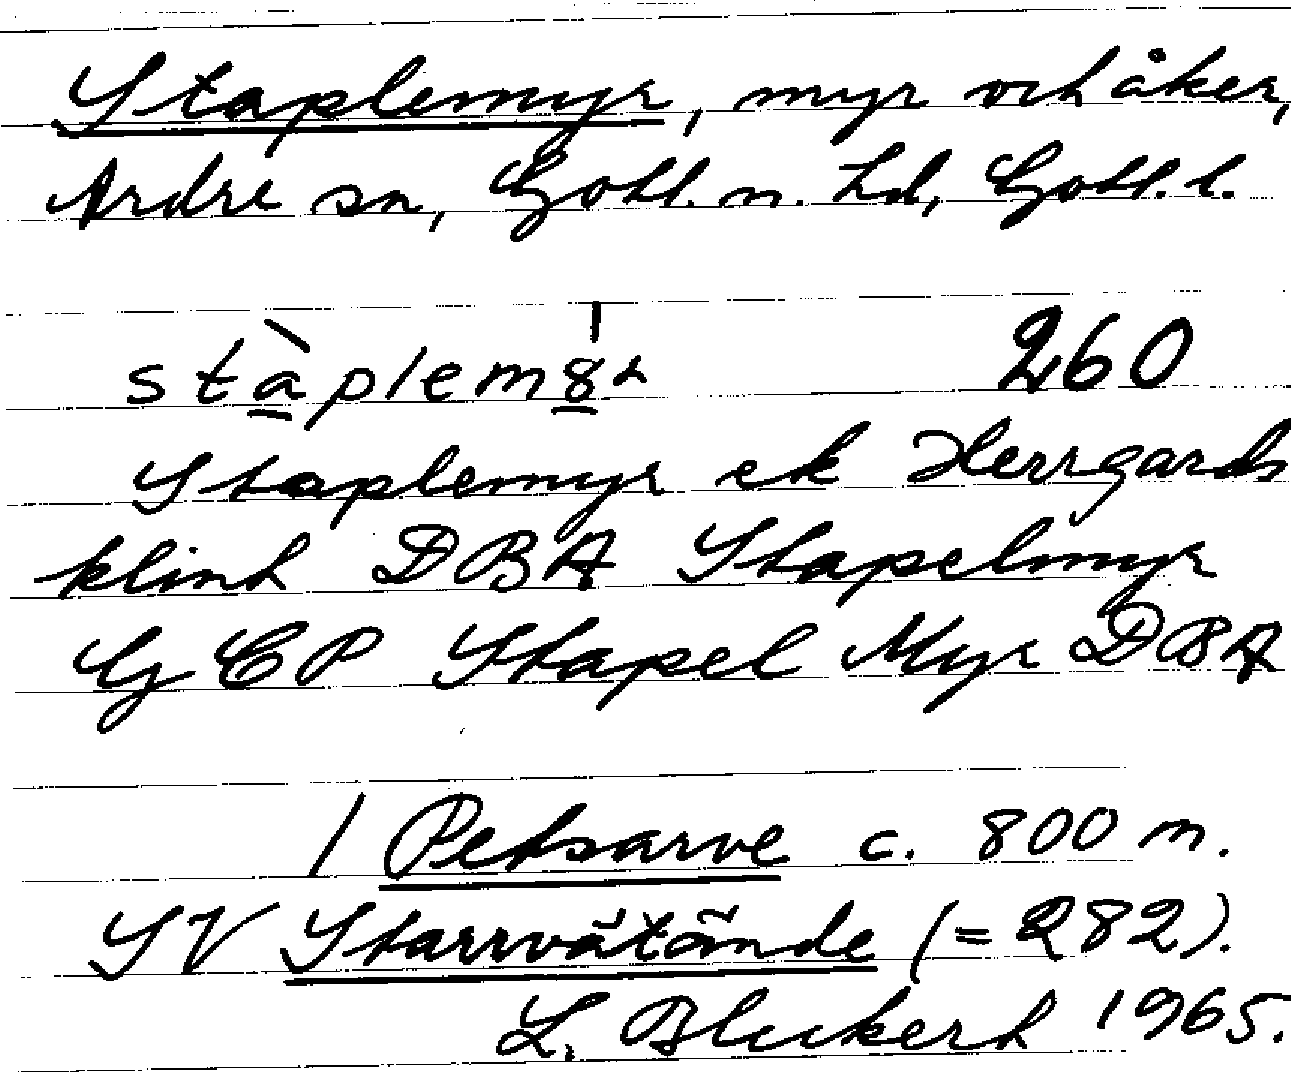 Staplemyr, myr och åker,
Ardre sn, Gotl. n. hd, Gotl. l.
260
Staplemyr ek Herrgards
klint DBA Stapelmyr
GCP Stapel Myr DBA
/ Petsarve c. 800 m.
SV Starrvätände (= 282).
L. Bleckert 1965.